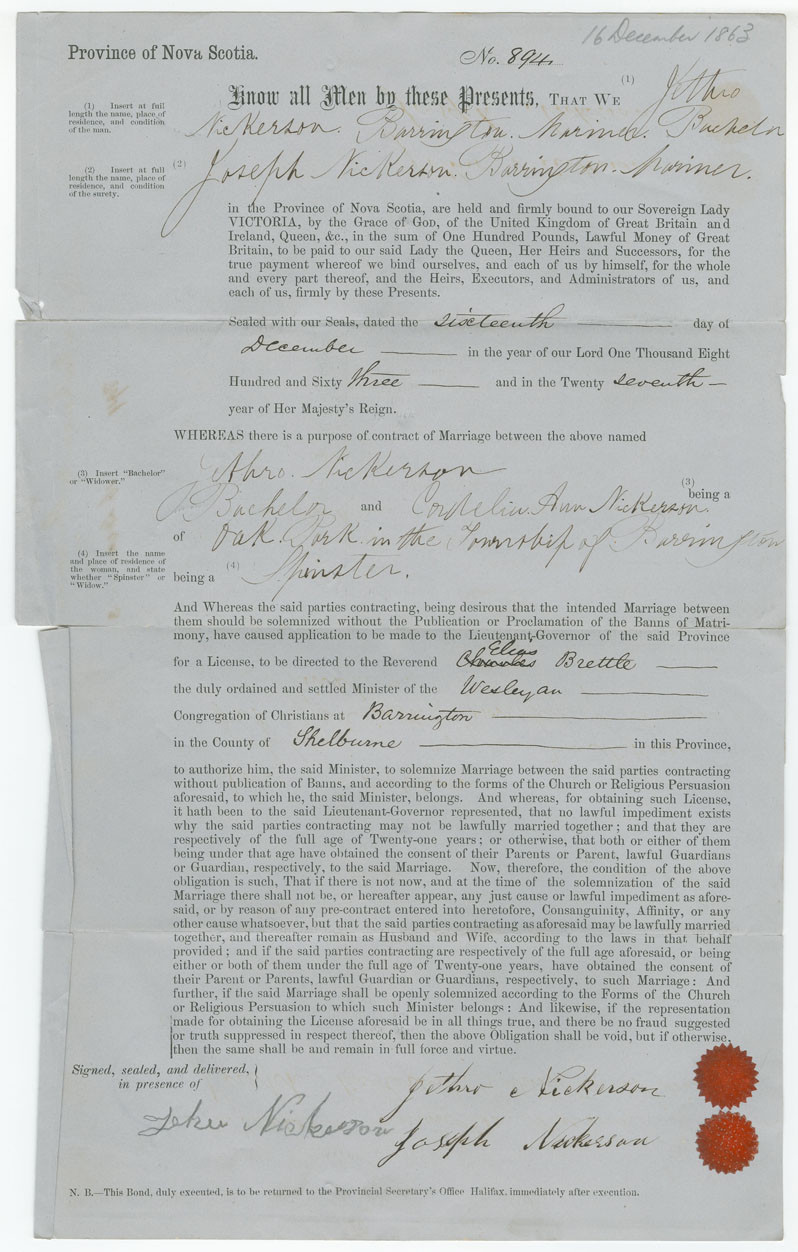 16 December 1863
Province of Nova Scotia.
No. 894.
(1) Insert at full
length the name, place of
residence, and condition
of the man.
Know all Men by these Presents, THAT WE (1) Jethro
Nickerson. Barrington. Mariner. Bachelor
(2) Insert at full
length the name, place of
residence, and condition
of the surety.
(2) Joseph Nickerson. Barrington. Mariner.
in the Province of Nova Scotia, are held and firmly bound to our Sovereign Lady
VICTORIA, by the Grace of GOD, of the United Kingdom of Great Britain and
Ireland, Queen, &c., in the sum of One Hundred Pounds, Lawful Money of Great
Britain, to be paid to our said Lady the Queen, Her Heirs and Successors, for the
true payment whereof we bind ourselves, and each of us by himself, for the whole
and every part thereof, and the Heirs, Executors, and Administrators of us, and
each of us, firmly by these Presents.
Sealed with our Seals, dated the sixteenth day of
December in the year of our Lord One Thousand Eight
Hundred and Sixty three and in the Twenty seventh
year of Her Majesty's Reign.
WHEREAS there is a purpose of contract of Marriage between the above named
(3) Insert "Bachelor"
or "Widower."
Jethro. Nickerson
(3) being a
Bachelor and Cordelia Ann Nickerson.
of Oak. Park in the Township of Barrington
(4) Insert the name
and place of residence of
the woman, and state
whether "Spinster" or
"Widow."
being a (4) Spinster.
And Whereas the said parties contracting, being desirous that the intended Marriage between
them should be solemnized without the Publication or Proclamation of the Banns of Matri-
mony, have caused application to be made to the Lieutenant-Governor of the said Province
Elias
for a License, to be directed to the Reverend Charles Brettle
the duly ordained and settled Minister of the Wesleyan
Congregation of Christians at Barrington
in the County of Shelburne in this Province,
to authorize him, the said Minister, to solemnize Marriage between the said parties contracting
without publication of Banns, and according to the forms of the Church or Religious Persuasion
aforesaid, to which he, the said Minister, belongs. And whereas, for obtaining such License,
it hath been to the said Lieutenant-Governor represented, that no lawful impediment exists
why the said parties contracting may not be lawfully married together; and that they are
respectively of the full age of Twenty-one years; or otherwise, that both or either of them
being under that age have obtained the consent of their Parents or Parent, lawful Guardians
or Guardian, respectively, to the said Marriage. Now, therefore, the condition of the above
obligation is such, That if there is not now, and at the time of the solemnization of the said
Marriage there shall not be, or hereafter appear, any just cause or lawful impediment as afore-
said, or by reason of any pre-contract entered into heretofore, Consanguinity, Affinity, or any
other cause whatsoever, but that the said parties contracting as aforesaid may be lawfully married
together, and thereafter remain as Husband and Wife, according to the laws in that behalf
provided; and if the said parties contracting are respectively of the full age aforesaid, or being
either or both of them under the full age of Twenty-one years, have obtained the consent of
their Parent or Parents, lawful Guardian or Guardians, respectively, to such Marriage: And
further, if the said Marriage shall be openly solemnized according to the Forms of the Church
or Religious Persuasion to which such Minister belongs: And likewise, if the representation
made for obtaining the License aforesaid be in all things true, and there be no fraud suggested
or truth suppressed in respect thereof, then the above Obligation shall be void, but if otherwise,
then the same shall be and remain in full force and virtue.
Signed, sealed, and delivered,
in presence of
Jethro Nickerson
Nickerson
Joseph Nickerson
N. B.—This Bond, duly executed, is to be returned to the Provincial Secretary's Office Halifax, immediately after execution.